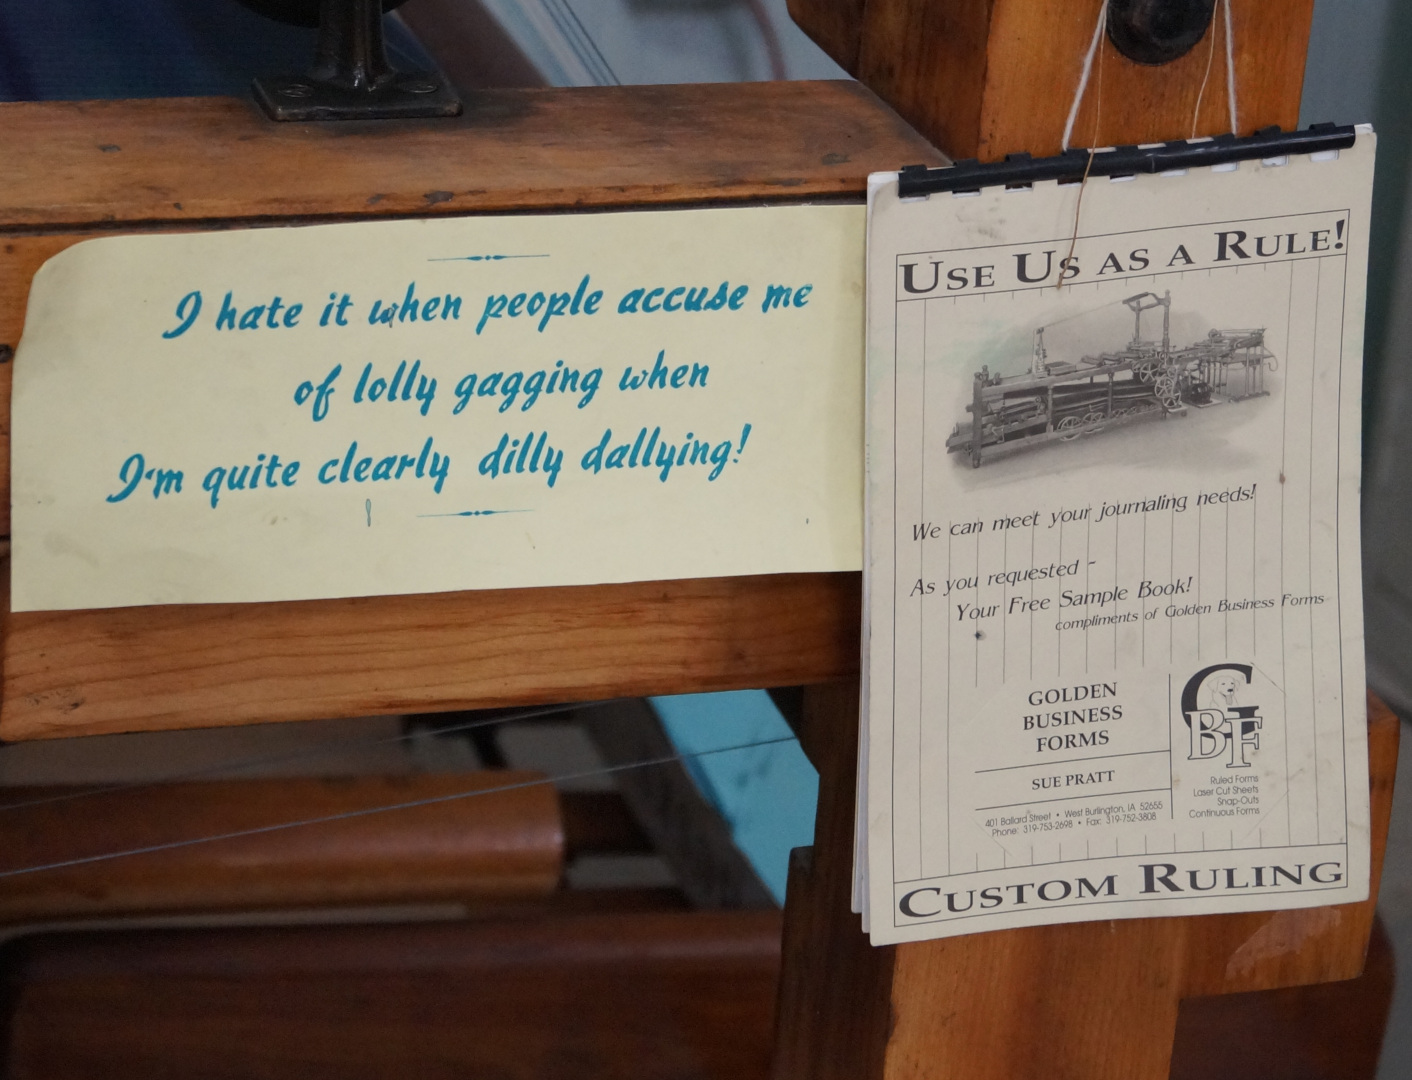 I hate it when people accuse me
of lolly gagging when
I'm quite clearly dilly dallying!
USE US AS A RULE!
We can meet your journaling needs!
As you requested -
Your Free Sample Book!
compliments of Golden Business Forms
GOLDEN
BUSINESS
FORMS
SUE PRATT
401 Ballard Street • West Burlington, IA 52655
Phone: 319-753-2698 • Fax: 319-752-3808
GBF
Ruled Forms
Laser Cut Sheets
Snap-Outs
Continuous Forms
CUSTOM RULING